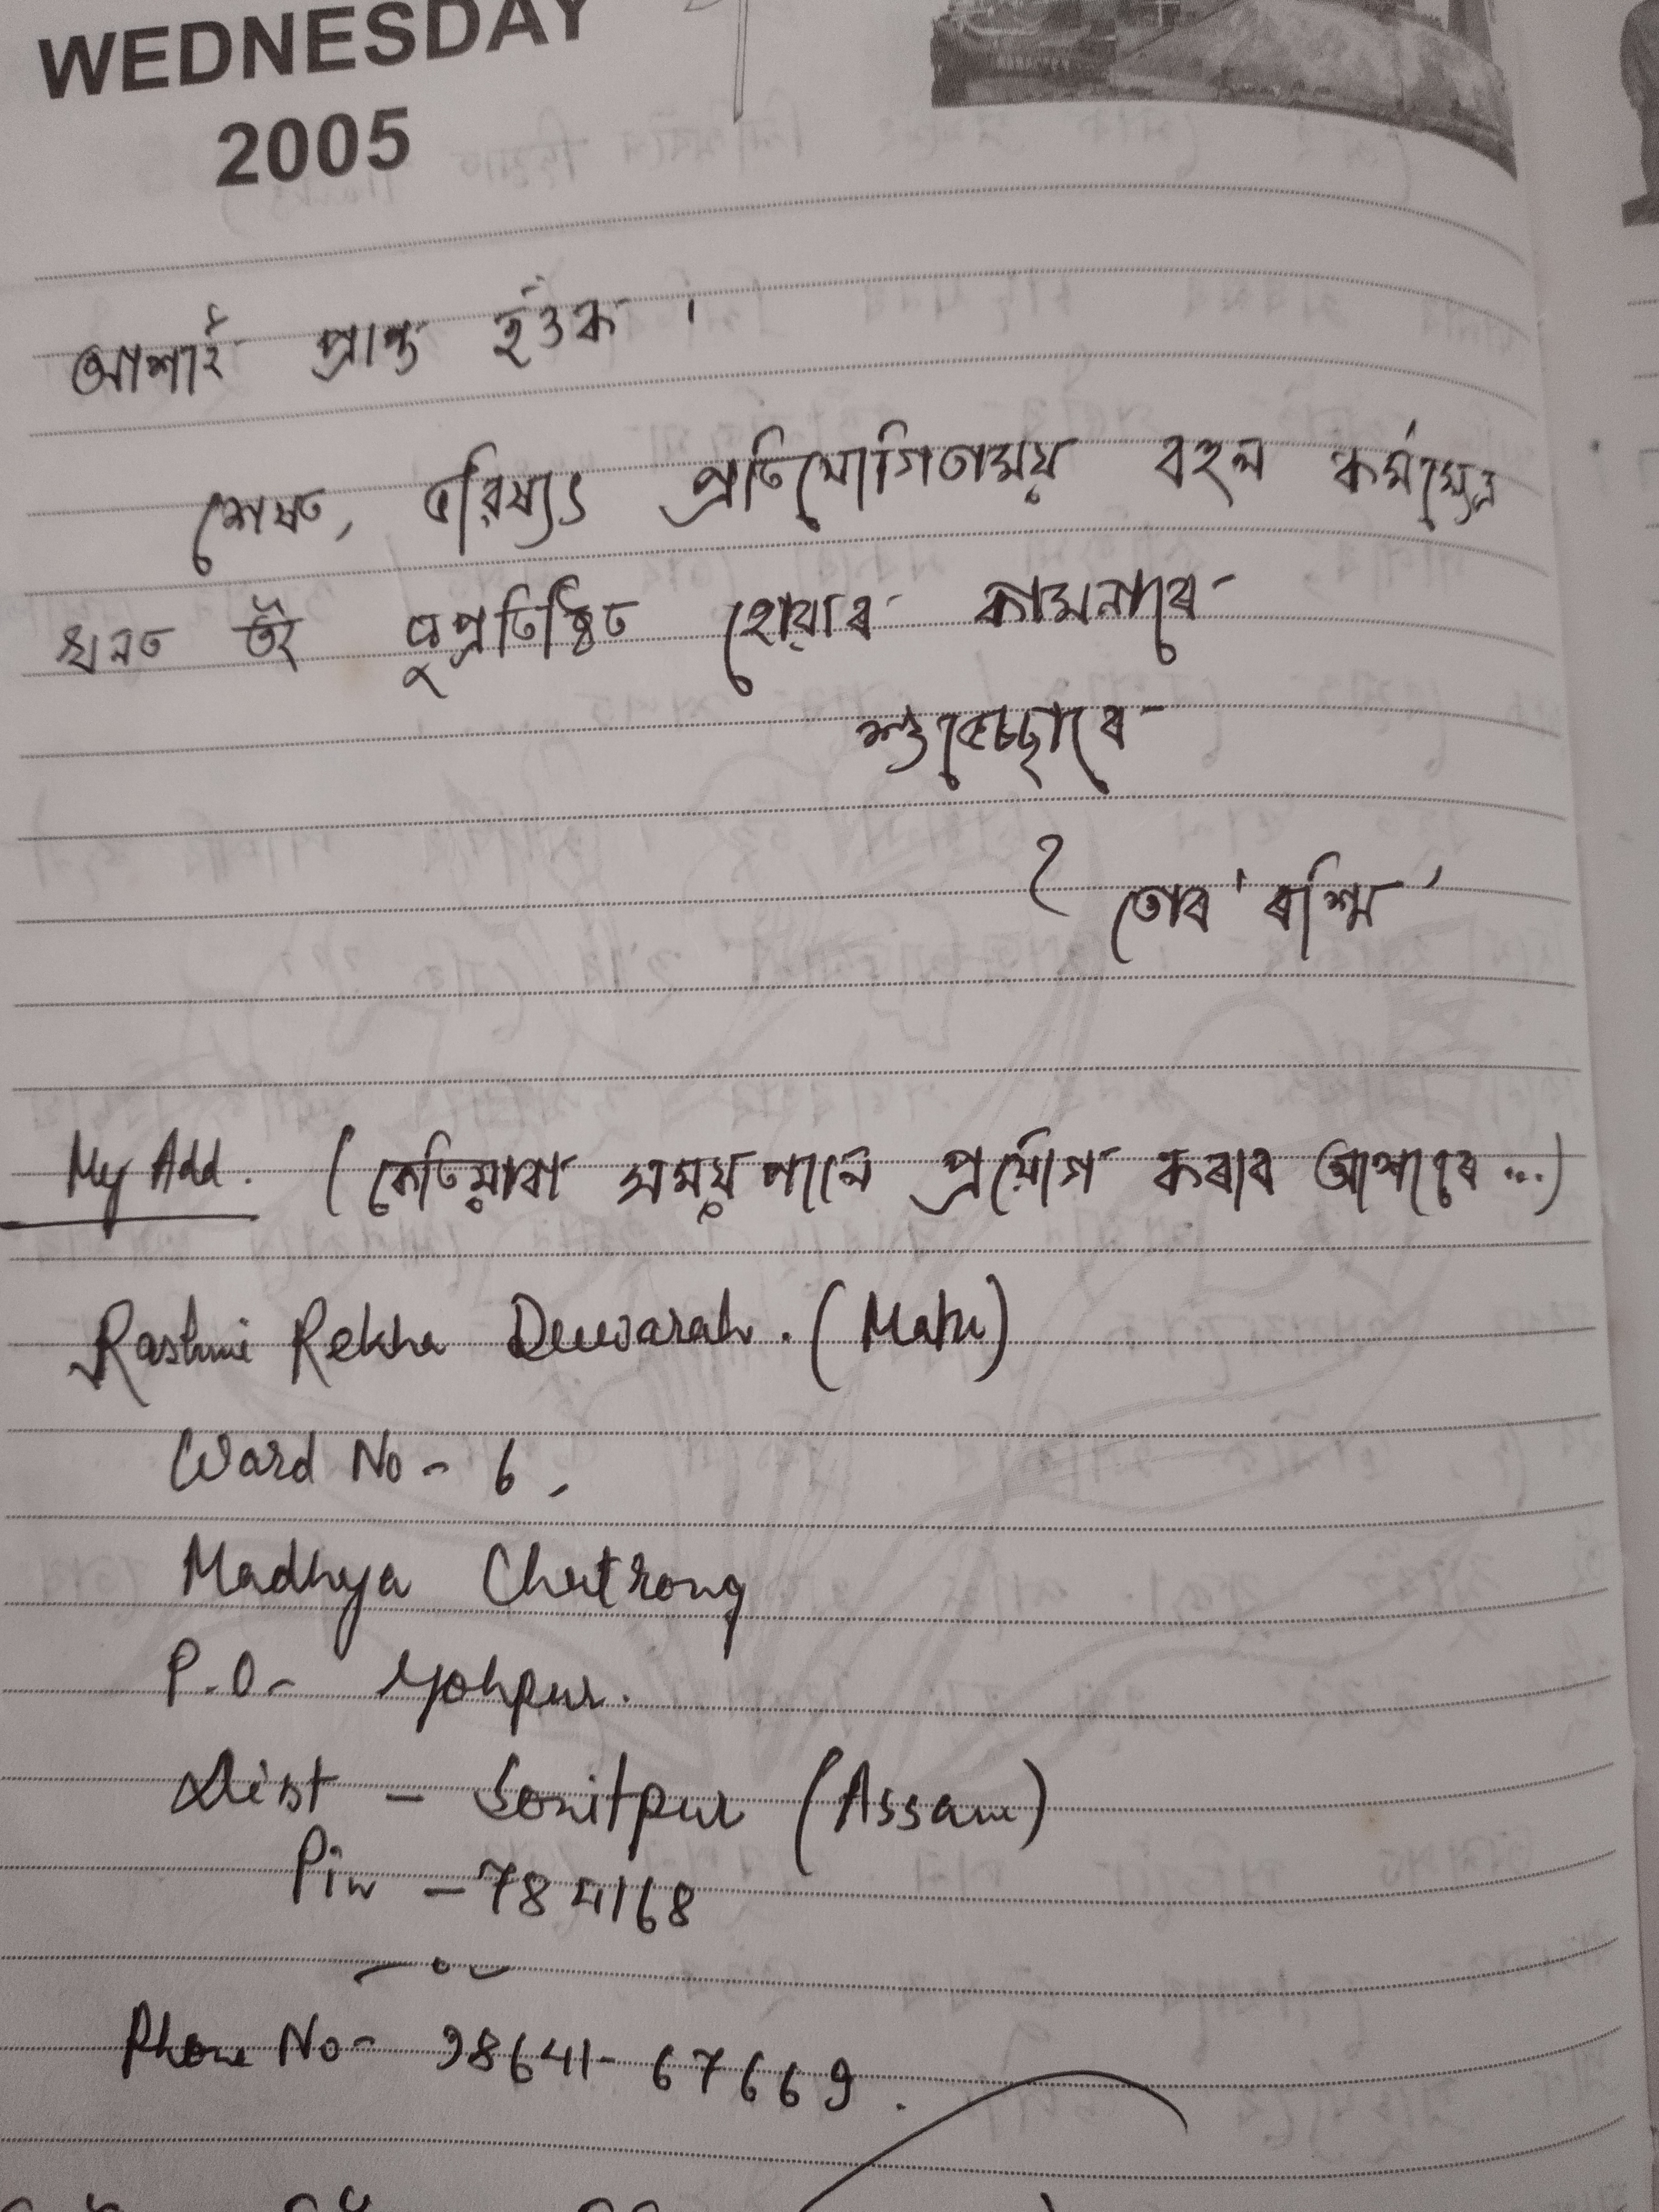 WEDNESDAY
2005
আশাই প্ৰান্ত হওঁক ।
শেষত, ভৱিষ্যৎ প্ৰতিযোগিতাময় বহল কৰ্মক্ষেত্ৰ
খনত তই সুপ্ৰতিষ্ঠিত হোৱাৰ কামনাৰে
শুভেচ্ছাৰে
তোৰ 'ৰশ্মি'
My Add. (কেতিয়াবা সময় পালে প্ৰয়োগ কৰাৰ আশাৰে ...)
Rashmi Rekha Dewarah. (Mahi)
Ward No - 6,
Madhya Chutrong
P.O- Gohpur.
Dist - Sonitpur (Assam)
Pin - 784168
Phone No - 98641-67669.